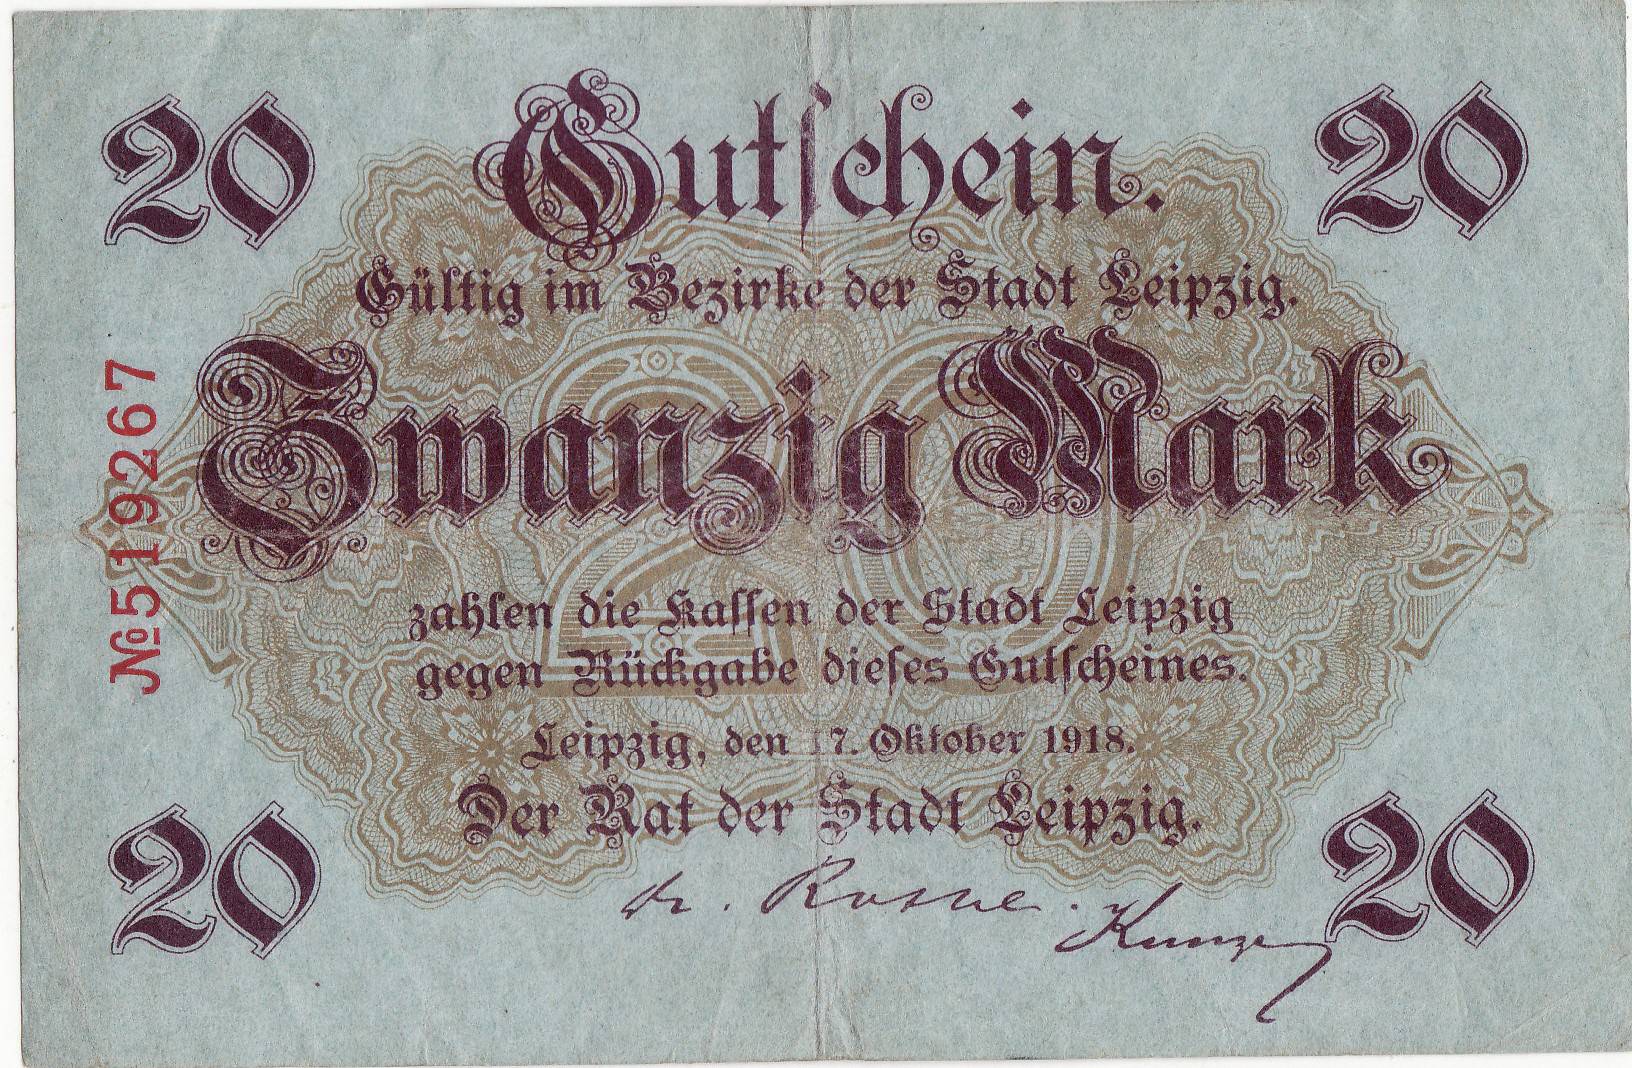 20 Gutschein. 20
Gültig im Bezirke der Stadt Leipzig.
Zwanzig Mark
20
№519267
zahlen die Kassen der Stadt Leipzig
gegen Rückgabe dieses Gutscheines.
Leipzig, den 17. Oktober 1918.
Der Rat der Stadt Leipzig.
20 20
Dr. Rothe. Kunze